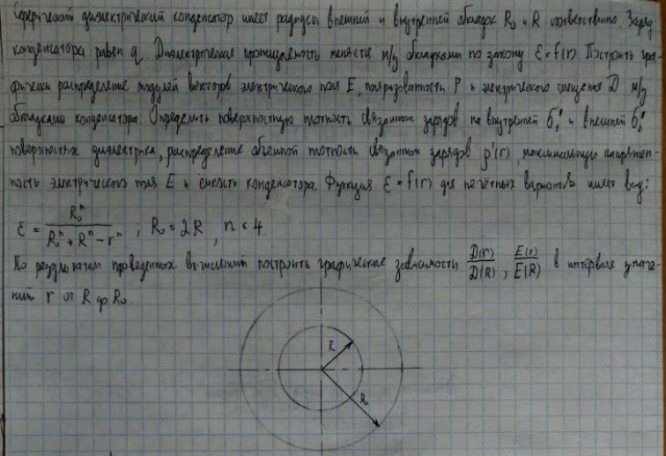 Сферический диэлектрический конденсатор имеет радиусы внешней и внутренней обкладок R₀ и R соответственно. Заряд
конденсатора равен q. Диэлектрическая проницаемость меняется м/у обкладками по закону ε = f(r). Построить гра-
фически распределение модулей векторов электрического поля E, поляризованности P и электрического смещения D м/у
обкладками конденсатора. Определить поверхностную плотность связанных зарядов на внутренней σ'₁ и внешней σ'₂
поверхностях диэлектрика, распределение объемной плотности связанных зарядов ρ'(r), максимальную напряжен-
ность электрического поля E и емкость конденсатора. Функция ε = f(r) для нечётных вариантов имеет вид:
ε = R₀ⁿ / (R₀ⁿ + Rⁿ - rⁿ) ; R₀ = 2R , n = 4.
По результатам проведенных вычислений построить графические зависимости D(r)/D(R), E(r)/E(R) в интервале значе-
ний r от R до R₀
R
R₀